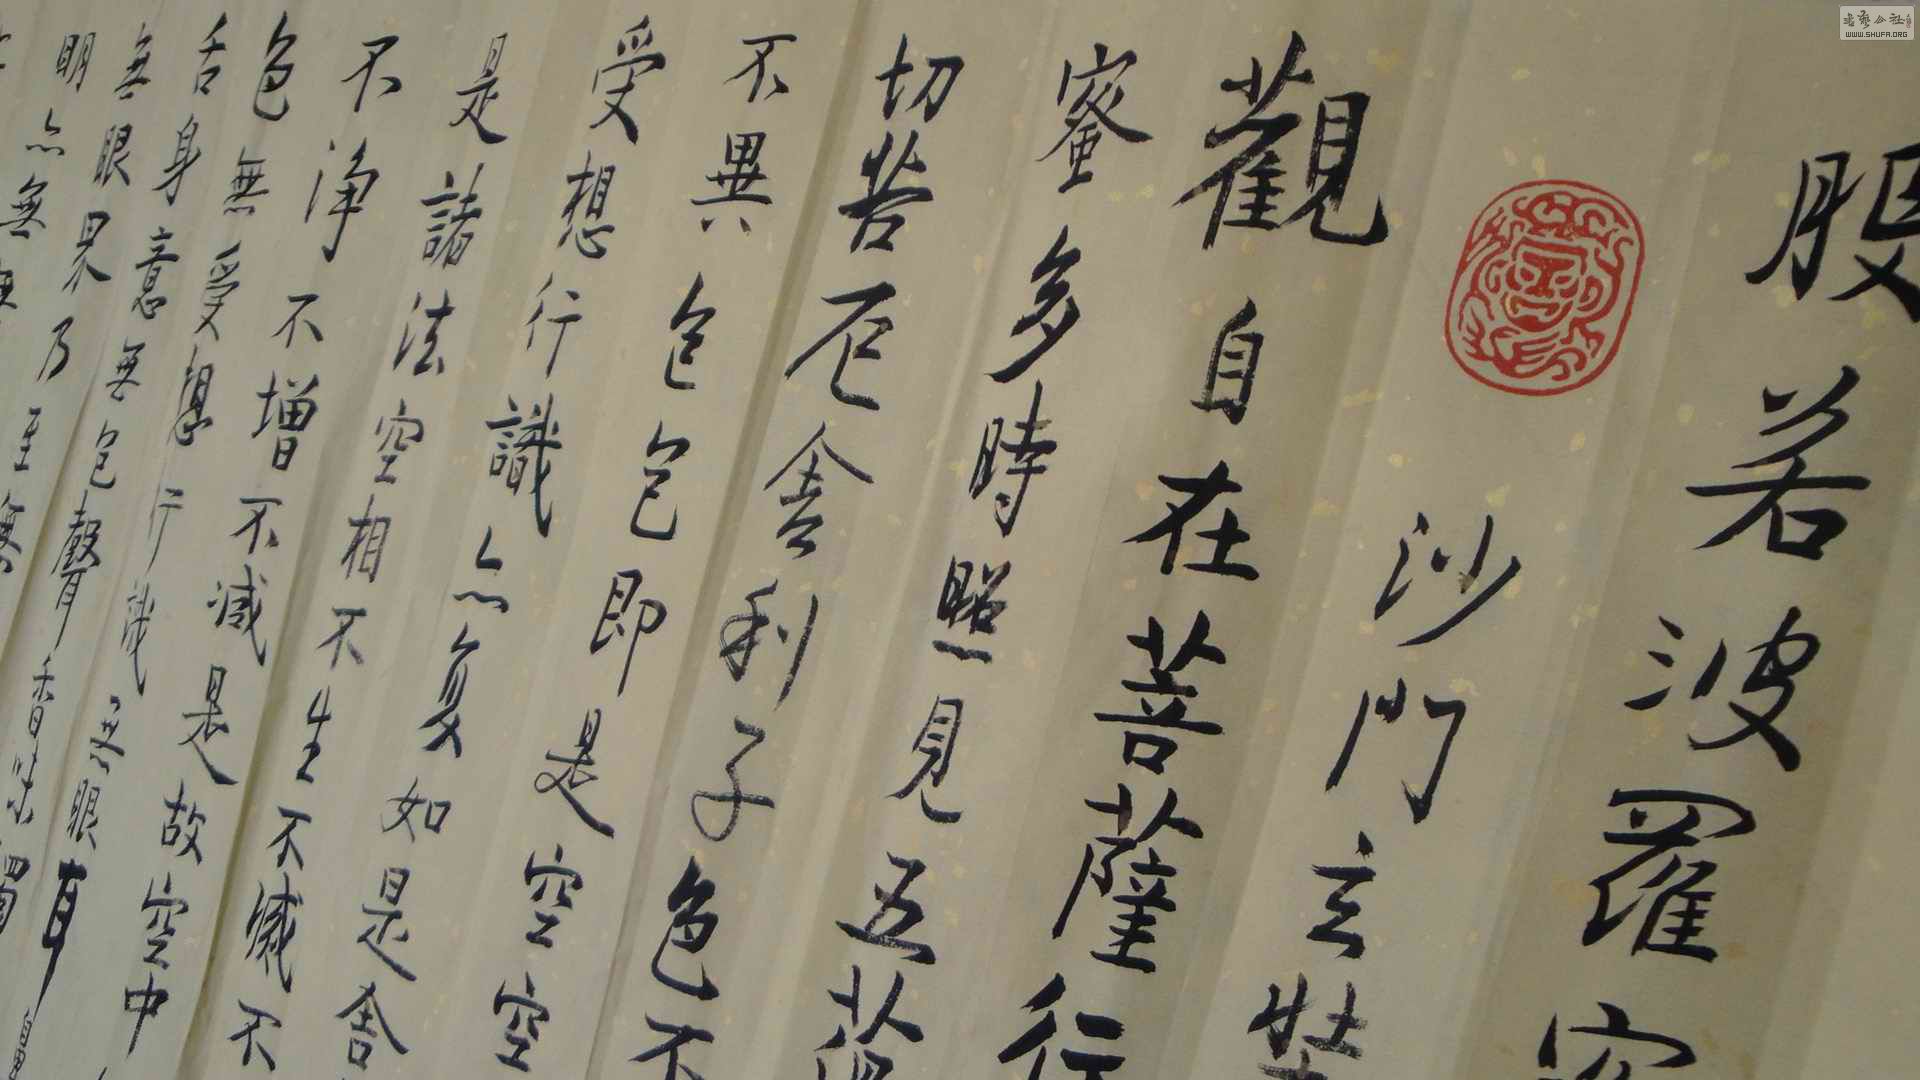 般若波羅
沙門玄奘
觀自在菩薩行
蜜多時照見五蘊
切苦厄舍利子色不
不異色色即是空空
受想行識亦复如是舍
是諸法空相不生不滅不
不净不增不减是故空中
色無受想行識无眼耳
舌身意無色聲香味觸
無眼界乃至無
明亦無
书艺公社
WWW.SHUFA.ORG